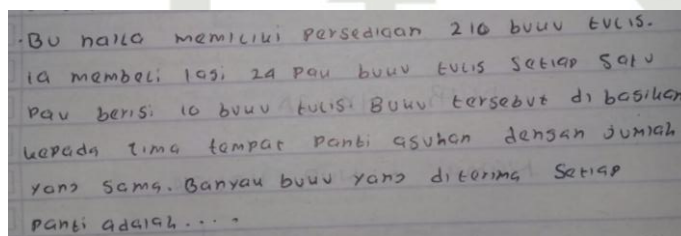 . Bu naila memiliki persediaan 210 buku tulis.
ia membeli lagi 24 pak buku tulis setiap satu
pak berisi 10 buku tulis. Buku tersebut di bagikan
kepada lima tempat panti asuhan dengan jumlah
yang sama. Banyak buku yang diterima setiap
panti adalah....